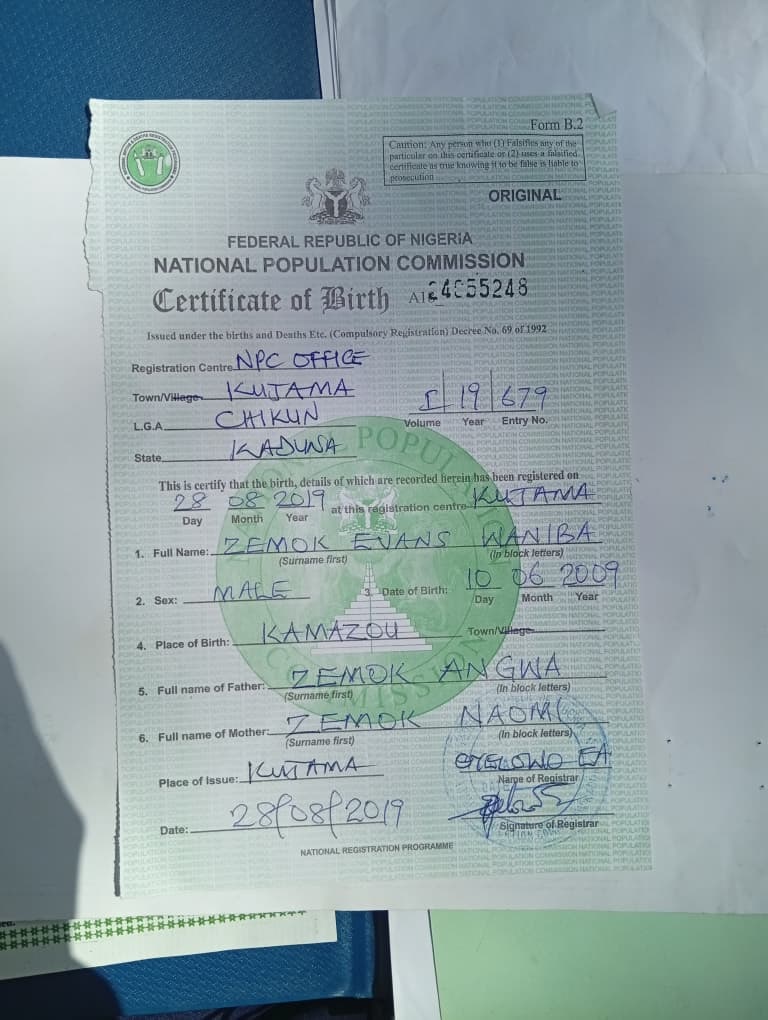 Form B.2
Caution: Any person who (1) Falsifies any of the
particular on this certificate or (2) uses a falsified
certificate as true knowing it to be false is liable to
prosecution
ORIGINAL
FEDERAL REPUBLIC OF NIGERIA
NATIONAL POPULATION COMMISSION
Certificate of Birth
Issued under the births and Deaths Etc. (Compulsory Registration) Decree No. 69 of 1992
Registration Centre NPC OFFICE
Town/Village KUJAMA
L.G.A CHIKUN
State KADUNA
I 19 679
Volume Year Entry No.
This is certify that the birth, details of which are recorded herein has been registered on
28 08 2019 at this registration centre KUJAMA
Day Month Year
1. Full Name: ZEMOK EVANS WANIBA
(Surname first) (In block letters)
2. Sex: MALE 3. Date of Birth: 10 06 2009
Day Month Year
4. Place of Birth: KAMAZOU Town/Village
5. Full name of Father: ZEMOK ANGWA
(Surname first) (In block letters)
6. Full name of Mother: ZEMOK NAOMI
(Surname first) (In block letters)
Place of Issue: KUJAMA
Name of Registrar
Date: 28/08/2019
Signature of Registrar
NATIONAL REGISTRATION PROGRAMME